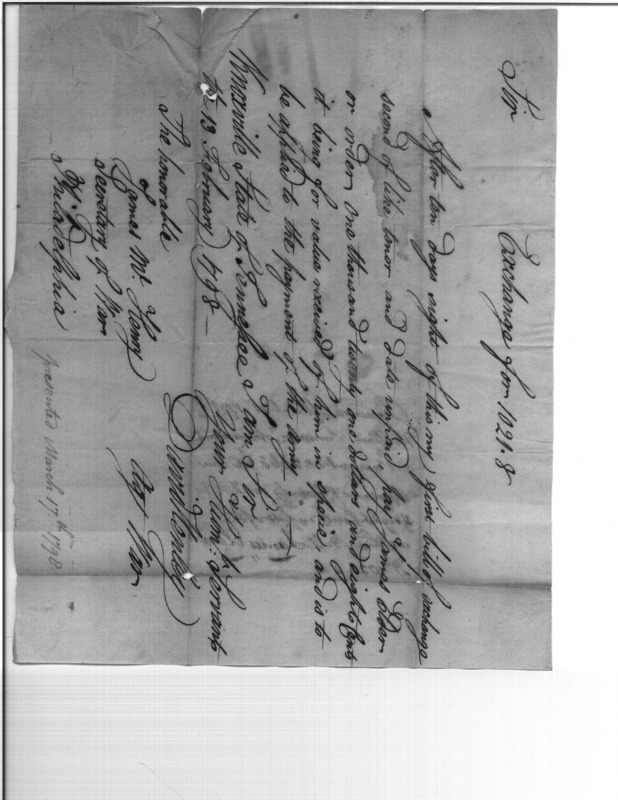 Exchange for 1021.8
Sir
After ten days sight of this my first bill of exchange
second of like tenor and date unpaid, pay James Elder
or order, one thousand twenty one dollars and eight Cents
it being for value received of him in specie, and is to
be applied to the payment of the army.
Knoxville State of Tennessee I am Sir
the 13 February 1798 — Your Hum: Servant
David Henley
Agt War
The honorable
James Mc Henry
Secretary of War
Philadelphia
presented March 17th 1798